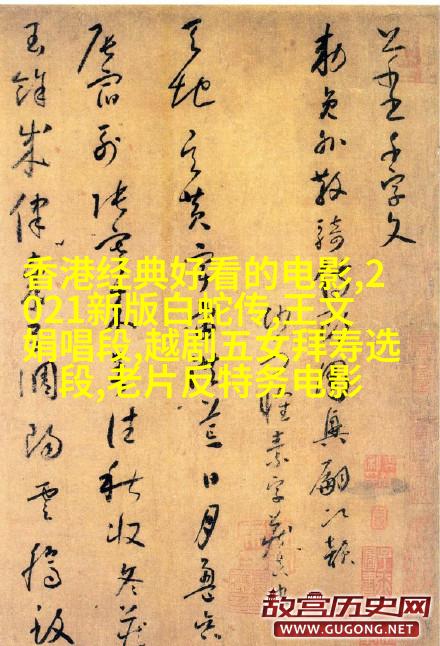 千字文
勅員外散騎侍郎周興嗣次韻
天地玄黃宇宙洪荒日月盈昃
辰宿列張寒來暑往秋收冬藏
餘成律呂調陽雲騰致
香港经典好看的电影,2
021新版白蛇传,王文
娟唱段,越剧五女拜寿选
段,老片反特务电影
故宫历史网
WWW.GUGONG.NET